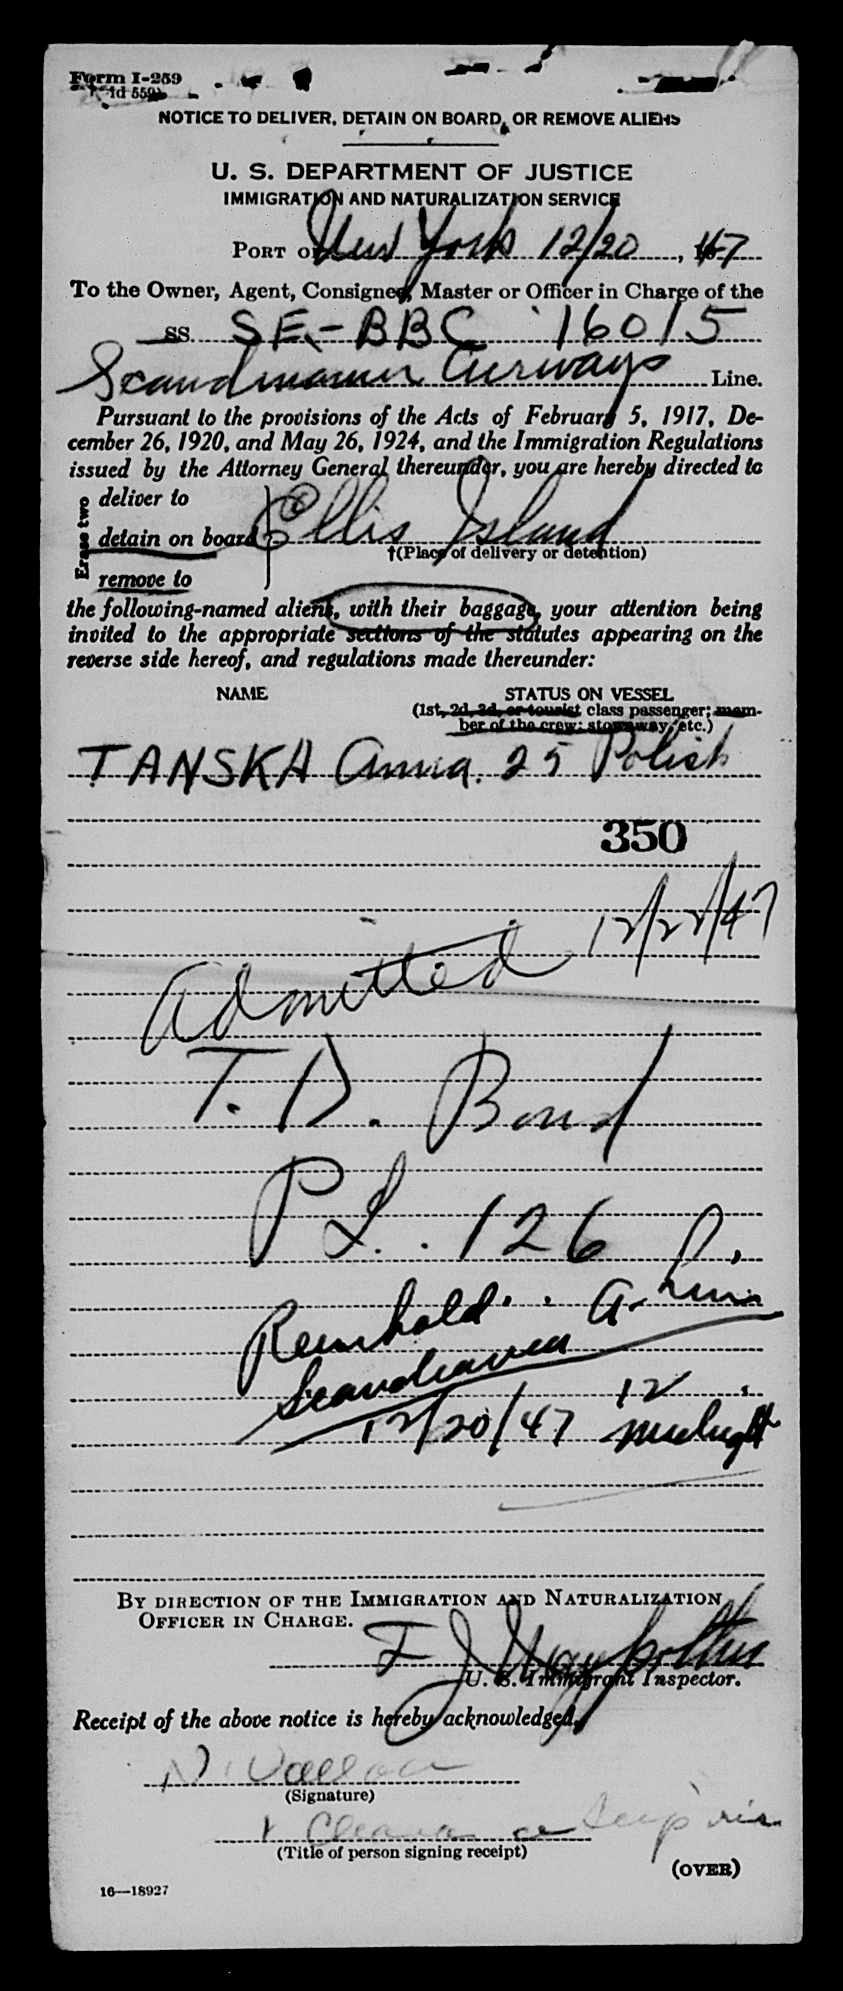 Form I-259
NOTICE TO DELIVER, DETAIN ON BOARD, OR REMOVE ALIENS
U. S. DEPARTMENT OF JUSTICE
IMMIGRATION AND NATURALIZATION SERVICE
PORT OF New York 12/20, 47
To the Owner, Agent, Consignee, Master or Officer in Charge of the
SS. SE-BBC 16015
Scandinavian Airways Line.
Pursuant to the provisions of the Acts of February 5, 1917, De-
cember 26, 1920, and May 26, 1924, and the Immigration Regulations
issued by the Attorney General thereunder, you are hereby directed to
Erase two
deliver to
detain on board
remove to
Ellis Island
†(Place of delivery or detention)
the following-named aliens, with their baggage, your attention being
invited to the appropriate sections of the statutes appearing on the
reverse side hereof, and regulations made thereunder:
NAME STATUS ON VESSEL
(1st, 2d, 3d, or tourist class passenger; mem-
ber of the crew; stowaway, etc.)
TANSKA Anna. 25 Polish
350
12/22/47
Admitted
T. D. Bond
126
Reinhold
12/20/47 12
Midnight
BY DIRECTION OF THE IMMIGRATION AND NATURALIZATION
OFFICER IN CHARGE.
U. S. Immigrant Inspector.
Receipt of the above notice is hereby acknowledged.
(Signature)
(Title of person signing receipt)
(OVER)
16—18927